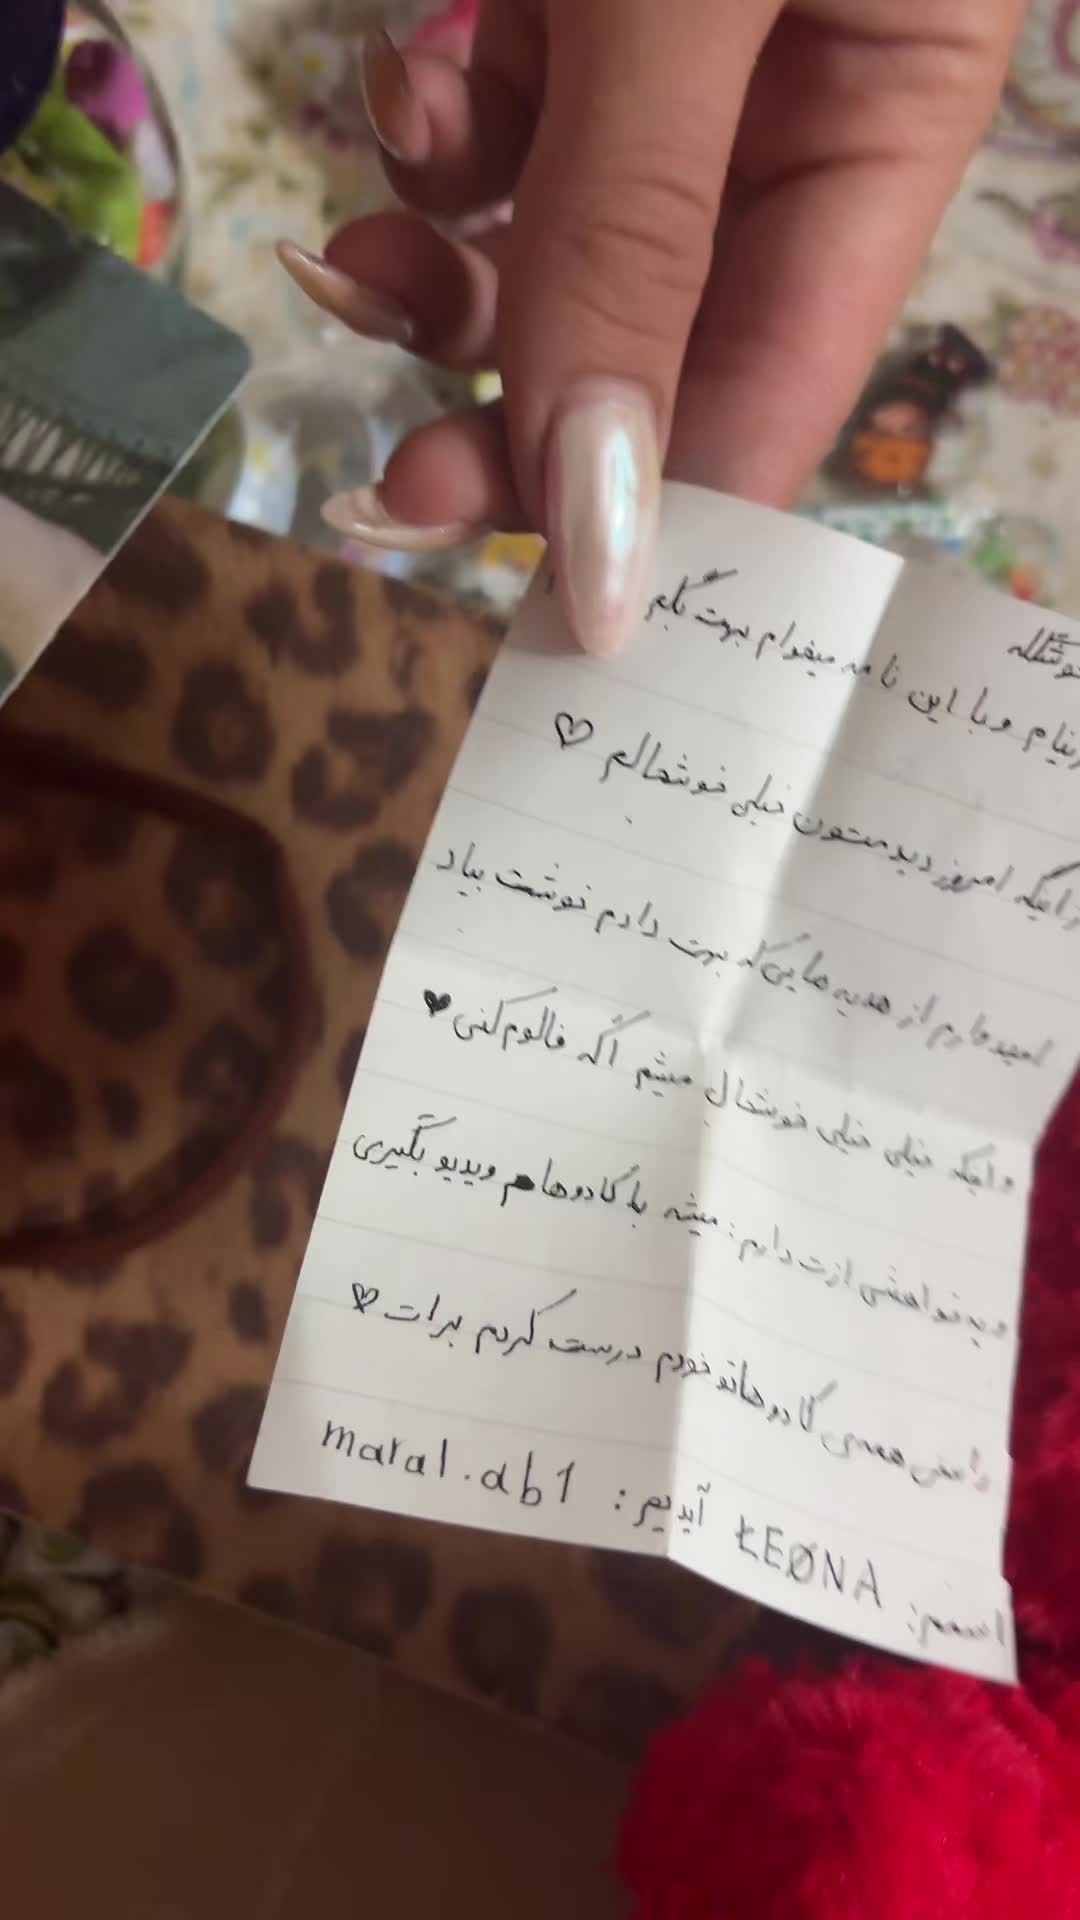 خوشگله
و با این نامه میخوام بهت بگم
امروز دیدمتون خیلی خوشحالم ♡
امیدوارم از هدیه هایی که بهت دادم خوشت بیاد
و اینکه خیلی خیلی خوشحال میشم اگه فالوم کنی ♥
و یه خواهشی ازت دارم: میشه با کادوهام ویدیو بگیری
راستی همه‌ی کادوهاتو خودم درست کردم برات ♡
اسمم: ŁEØNA آیدیم: maral.ab1